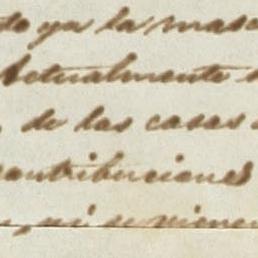 ya la
Actualmente
de las casas
contribuciones
ni se